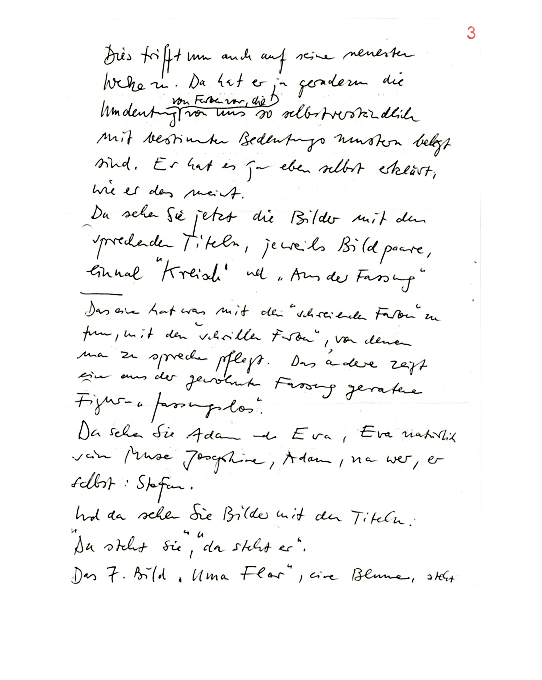 3
Dies trifft nun auch auf seine neuesten
Werke zu. Da hat er ja geradezu die
von Farben vor, die
Umdeutung vor uns so selbstverständlich
mit bestimmten Bedeutungsmustern belegt
sind. Er hat es ja eben selbst erklärt,
wie er das meint.
Da sehen Sie jetzt die Bilder mit den
sprechenden Titeln, jeweils Bildpaare,
einmal "Kreisch" und "Aus der Fassung"
Das eine hat was mit den "schreienden Farben" zu
tun, mit den "schrillen Farben", von denen
man zu sprechen pflegt. Das andere zeigt
eine aus der gewohnten Fassung geratene
Figur "fassungslos".
Da sehen Sie Adam und Eva, Eva natürlich
seine Muse Josephine, Adam, na wer, er
selbst: Stefan.
Und da sehen Sie Bilder mit den Titeln:
"Da steht sie", "da steht er".
Das 7. Bild "Uma Flor", eine Blume, steht